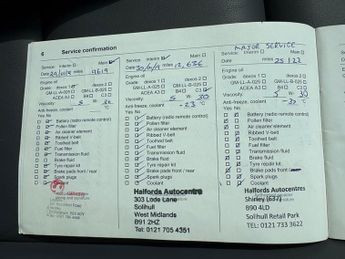 6
Service confirmation
Service Interim Main
Date miles 9619
Engine oil
Grade: dexos 1 dexos 2
GM-LL-A-025 GM-LL-B-025
ACEA A3 B4 C3
Viscosity 5 W 30
Anti-freeze, coolant
Yes No
Battery (radio remote control)
Pollen filter
Air cleaner element
Ribbed V-belt
Toothed belt
Fuel filter
Transmission fluid
Brake fluid
Tyre repair kit
Brake pads front / rear
Spark plugs
Coolant
Service Interim Main
Date miles 12,636
Engine oil
Grade: dexos 1 dexos 2
GM-LL-A-025 GM-LL-B-025
ACEA A3 B4 C3
Viscosity 5 W 30
Anti-freeze, coolant -23°C
Yes No
Battery (radio remote control)
Pollen filter
Air cleaner element
Ribbed V-belt
Toothed belt
Fuel filter
Transmission fluid
Brake fluid
Tyre repair kit
Brake pads front / rear
Spark plugs
Coolant
Halfords Autocentre
303 Lode Lane
Solihull
West Midlands
B91 2HZ
Tel: 0121 705 4351
MAJOR SERVICE
Service Interim Main
Date miles 25122
Engine oil
Grade: dexos 1 dexos 2
GM-LL-A-025 GM-LL-B-025
ACEA A3 B4 C3
Viscosity 5 W 30
Anti-freeze, coolant
Yes No
Battery (radio remote control)
Pollen filter
Air cleaner element
Ribbed V-belt
Toothed belt
Fuel filter
Transmission fluid
Brake fluid
Tyre repair kit
Brake pads front / rear
Spark plugs
Coolant
Halfords Autocentres
Shirley (637)
B90 4LD
Solihull Retail Park
TEL: 0121 733 3622